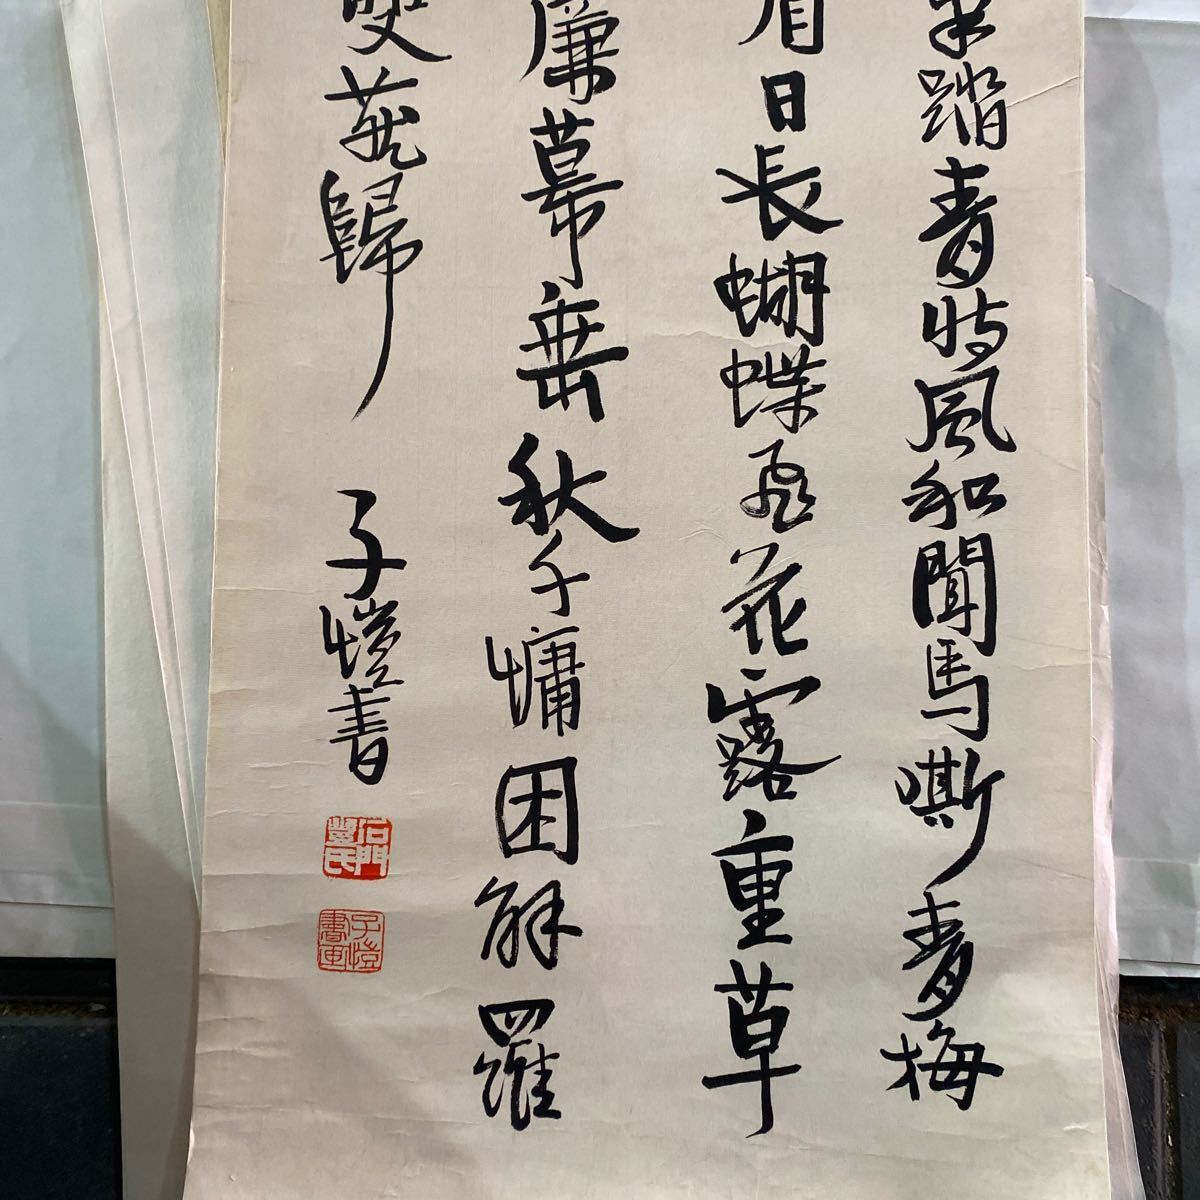 半踏青時風和聞馬嘶青梅
眉日長蝴蝶飛花露重草
簾幕垂秋千慵困解羅
雙燕歸 子愷書
石門豐氏
子愷書畫